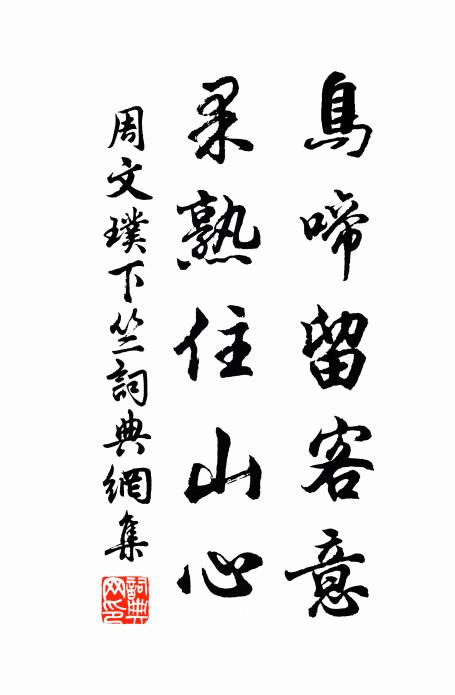 鳥啼留客意
果熟住山心
周文璞下竺詞典網集
詞典網印